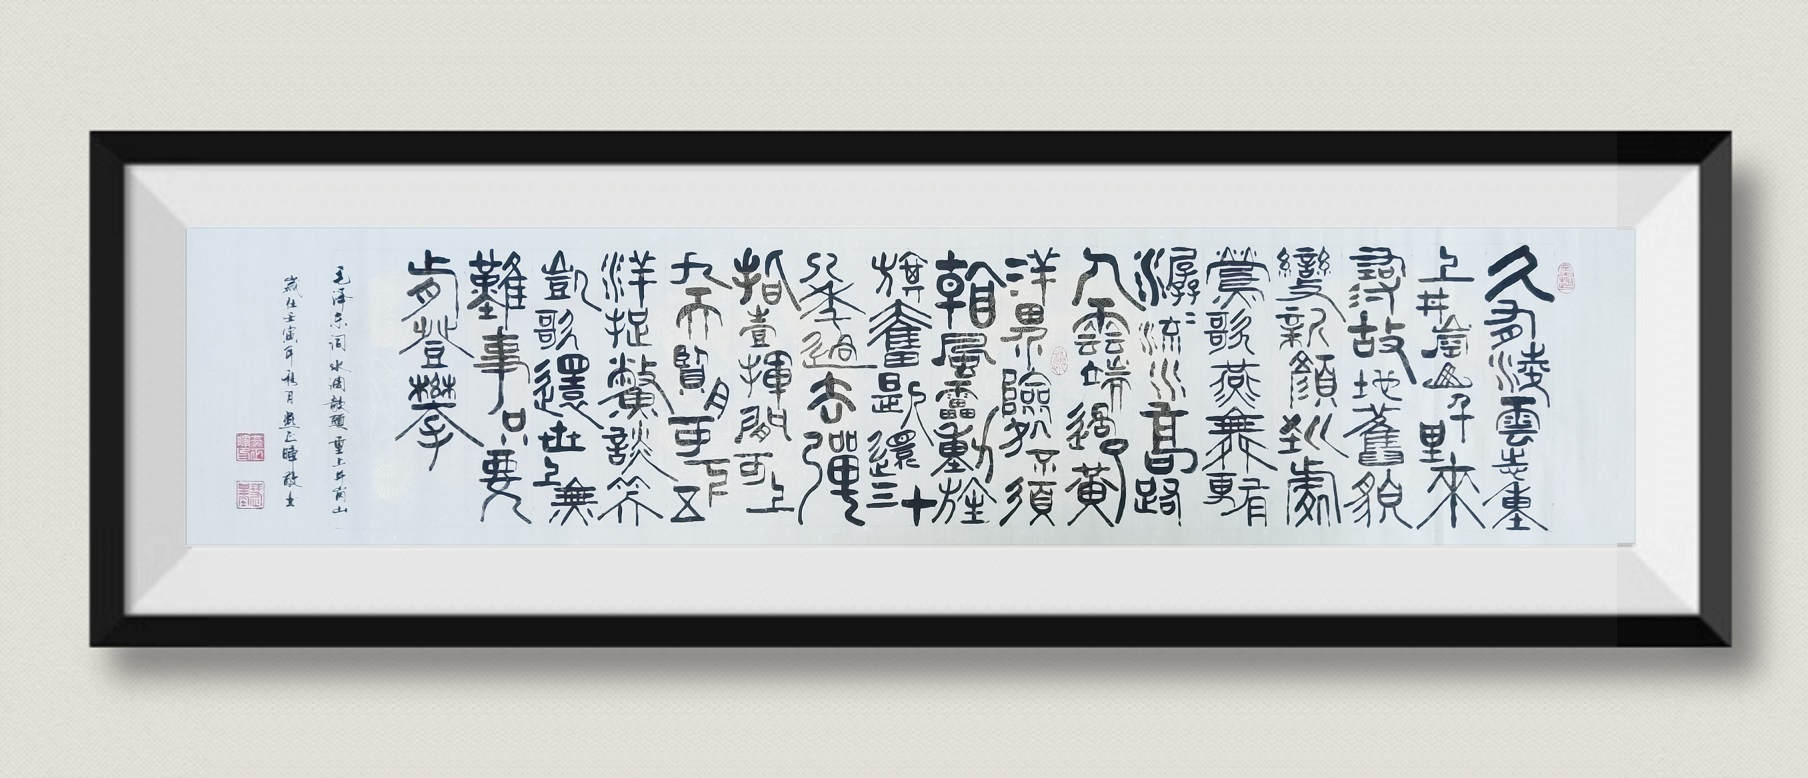 久有凌雲志重
上井崗山千里來
尋故地舊貌
變新顏到處
鶯歌燕舞更有
潺潺流水高路
入雲端過了黃
洋界險処不須
看風雷動旌
旗奮是人還三十
八年過去彈
指壹揮間可上
九天覽月可下五
洋捉鱉談笑
凱歌還世上無
難事只要
肯登攀
毛泽东词水调歌頭重上井崗山
歲在壬寅年月正敬书